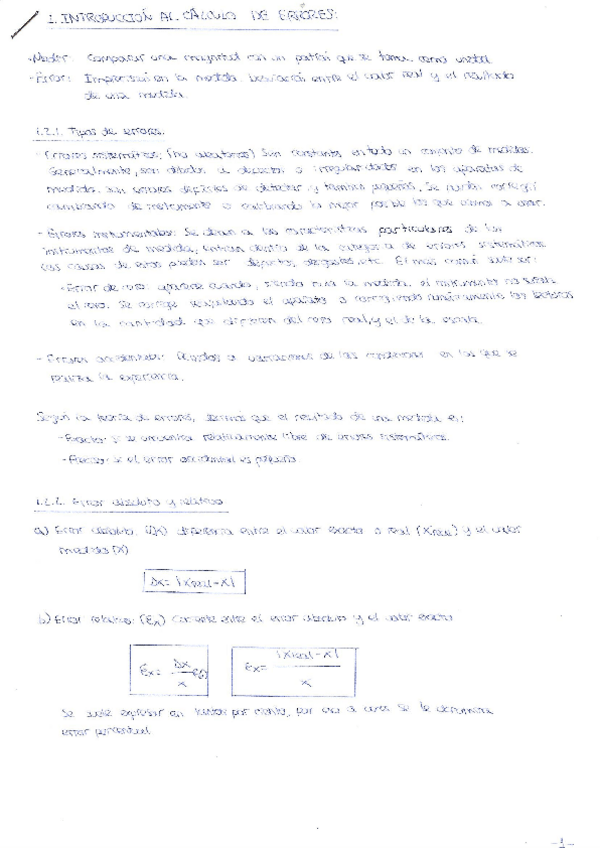 1. INTRODUCCIÓN AL CÁLCULO DE ERRORES:
- Medir: Comparar una magnitud con un patrón que se toma como unidad
- Error: Imprecisión en la medida. Desviación entre el valor real y el resultado
de una medida.
1.2.1. Tipos de errores:
- Errores sistemáticos: (no aleatorios) Son constantes en todo un conjunto de medidas.
Generalmente, son debidos a defectos o irregularidades en los aparatos de
medida. Son errores difíciles de detectar y tamaño pequeños. Se pueden corregir
cambiando de instrumento o calibrando lo mejor posible los que vamos a usar.
- Errores instrumentales: Se deben a las características particulares de los
instrumentos de medida, entran dentro de la categoría de errores sistemáticos
Las causas de estos pueden ser defectos, desgastes, etc. El más común suele ser:
- Error de cero: aparece cuando, siendo nula la medida, el instrumento no señala
el cero. Se corrige reajustando el aparato o corrigiendo las lecturas
en la cantidad que difieren del cero real y el de la escala
- Errores accidentales: Debidos a variaciones de las condiciones en las que se
realiza la experiencia.
Según la teoría de errores, decimos que el resultado de una medida es:
- Exacto: si se encuentra relativamente libre de errores sistemáticos.
- Preciso: si el error accidental es pequeño
1.2.2. Error absoluto y relativo
a) Error absoluto: (Δx) diferencia entre el valor exacto o real (Xreal) y el valor
medido (X)
Δx = |Xreal - X|
b) Error relativo: (Ex) Cociente entre el error absoluto y el valor exacto
Ex = Δx / x
Ex = |Xreal - X| / x
Se suele expresar en tantos por ciento, por eso a veces se le denomina
error porcentual
- 1 -